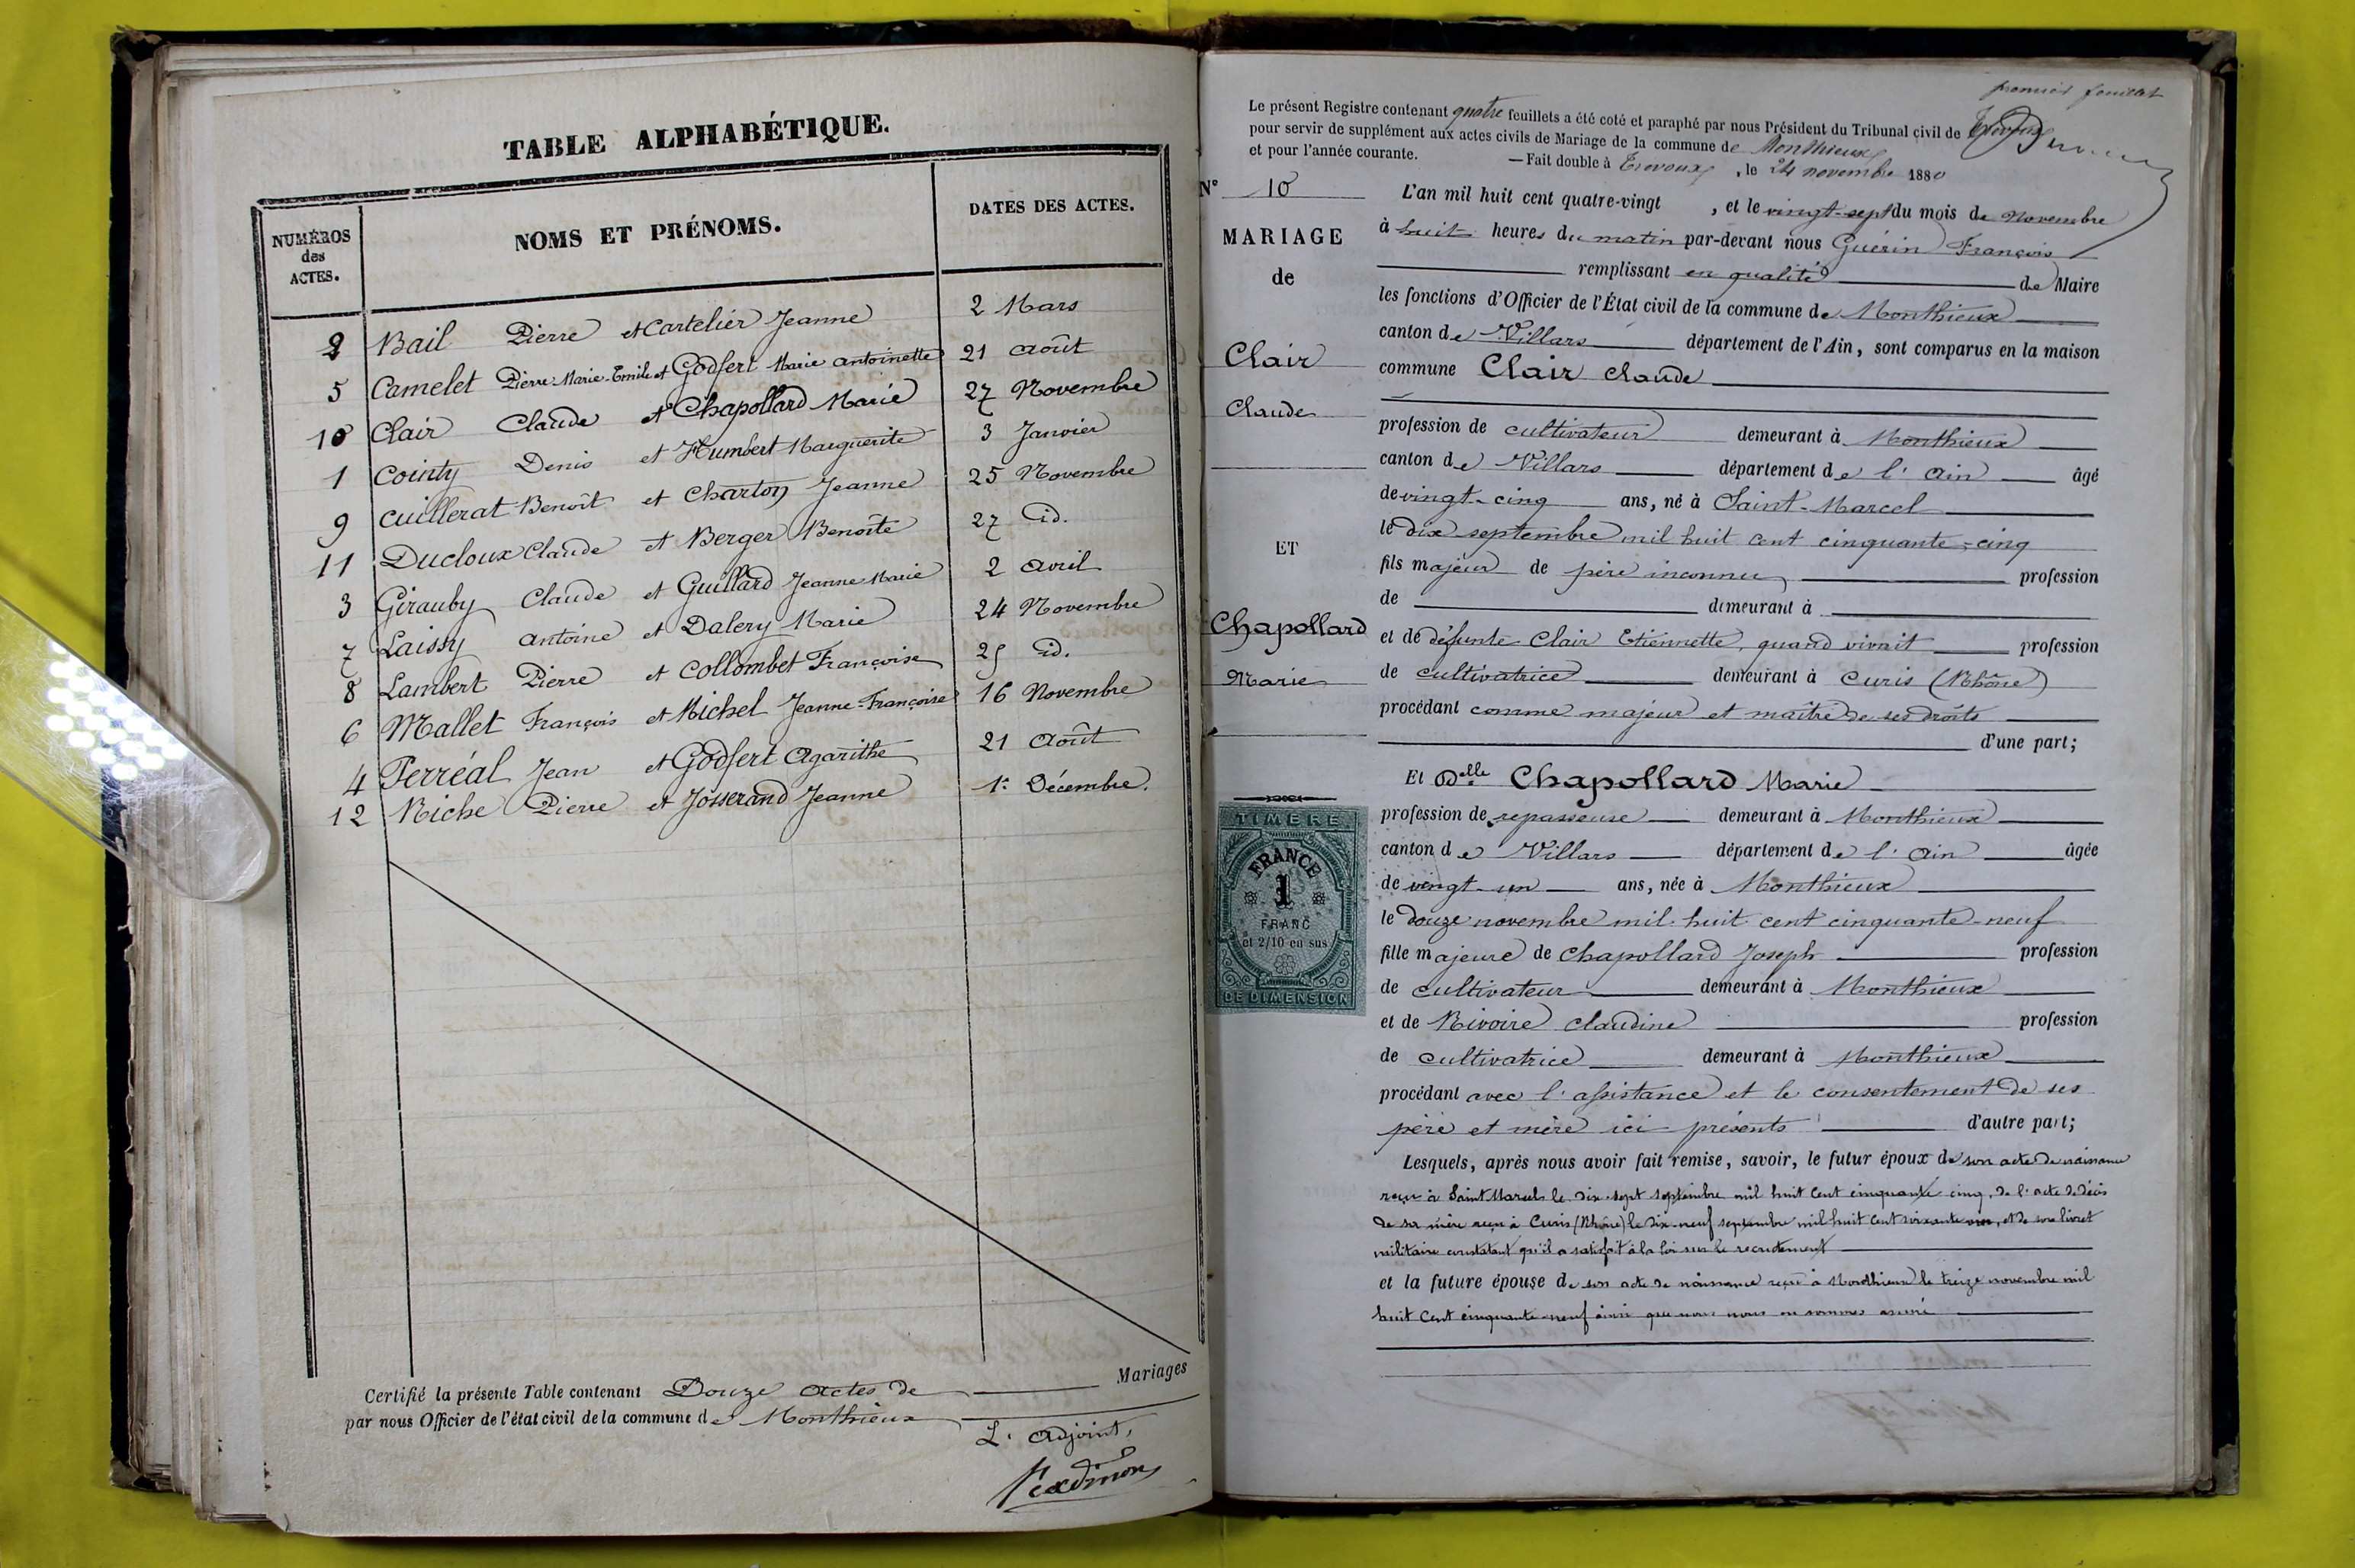 TABLE ALPHABÉTIQUE.
NUMÉROS des ACTES. NOMS ET PRÉNOMS. DATES DES ACTES.
2 Bail Pierre et Cartelier Jeanne 2 Mars
5 Camelet Pierre-Marie-Emile et Godfert Marie Antoinette 21 Août
10 Clair Claude et Chapollard Marie 27 Novembre
1 Cointy Denis et Humbert Marguerite 3 Janvier
9 Cuillerat Benoît et Charton Jeanne 25 Novembre
11 Ducloux Claude et Berger Benoîte 27 id.
3 Girauby Claude et Guillard Jeanne Marie 2 Avril
7 Laissy Antoine et Dalery Marie 24 Novembre
8 Lambert Pierre et Collombet Françoise 25 id.
6 Mallet François et Michel Jeanne-Françoise 16 Novembre
4 Perréal Jean et Godfert Agarithe 21 Août
12 Riche Pierre et Josserand Jeanne 1er Décembre.
Certifié la présente Table contenant Douze actes de Mariages
par nous Officier de l'état civil de la commune de Monthieux
L'adjoint,
premier feuillet
Le présent Registre contenant quatre feuillets a été coté et paraphé par nous Président du Tribunal civil de Trévoux
pour servir de supplément aux actes civils de Mariage de la commune de Monthieux
et pour l'année courante. — Fait double à Trevoux, le 24 novembre 1880
N° 10
MARIAGE
de
Clair
Claude
ET
Chapollard
Marie
TIMBRE
FRANCE
1
FRANC
et 2/10 en sus
DE DIMENSION
L'an mil huit cent quatre-vingt , et le vingt-sept du mois de Novembre
à huit heures du matin par-devant nous Guérin François
remplissant en qualité de Maire
les fonctions d'Officier de l'État civil de la commune de Monthieux
canton de Villars département de l'Ain, sont comparus en la maison
commune Clair Claude
profession de cultivateur demeurant à Monthieux
canton de Villars département de l'Ain âgé
de vingt-cinq ans, né à Saint-Marcel
le dix septembre mil huit cent cinquante-cinq
fils majeur de père inconnu profession
de demeurant à
et de défunte Clair Etiennette, quand vivait profession
de cultivatrice demeurant à Curis (Rhône)
procédant comme majeur et maître de ses droits
d'une part;
Et Delle Chapollard Marie
profession de repasseuse demeurant à Monthieux
canton de Villars département de l'Ain âgée
de vingt-un ans, née à Monthieux
le douze novembre mil huit cent cinquante-neuf
fille majeure de Chapollard Joseph profession
de cultivateur demeurant à Monthieux
et de Rivoire Claudine profession
de cultivatrice demeurant à Monthieux
procédant avec l'assistance et le consentement de ses
père et mère ici présents d'autre part;
Lesquels, après nous avoir fait remise, savoir, le futur époux de son acte de naissance
reçu à Saint Marcel le dix-sept septembre mil huit cent cinquante-cinq, de l'acte de décès
de sa mère reçu à Curis (Rhône) le dix-neuf septembre mil huit cent soixante, et de son livret
militaire constatant qu'il a satisfait à la loi sur le recrutement
et la future épouse de son acte de naissance reçu à Monthieux le treize novembre mil
huit cent cinquante-neuf ainsi que nous nous en sommes assuré